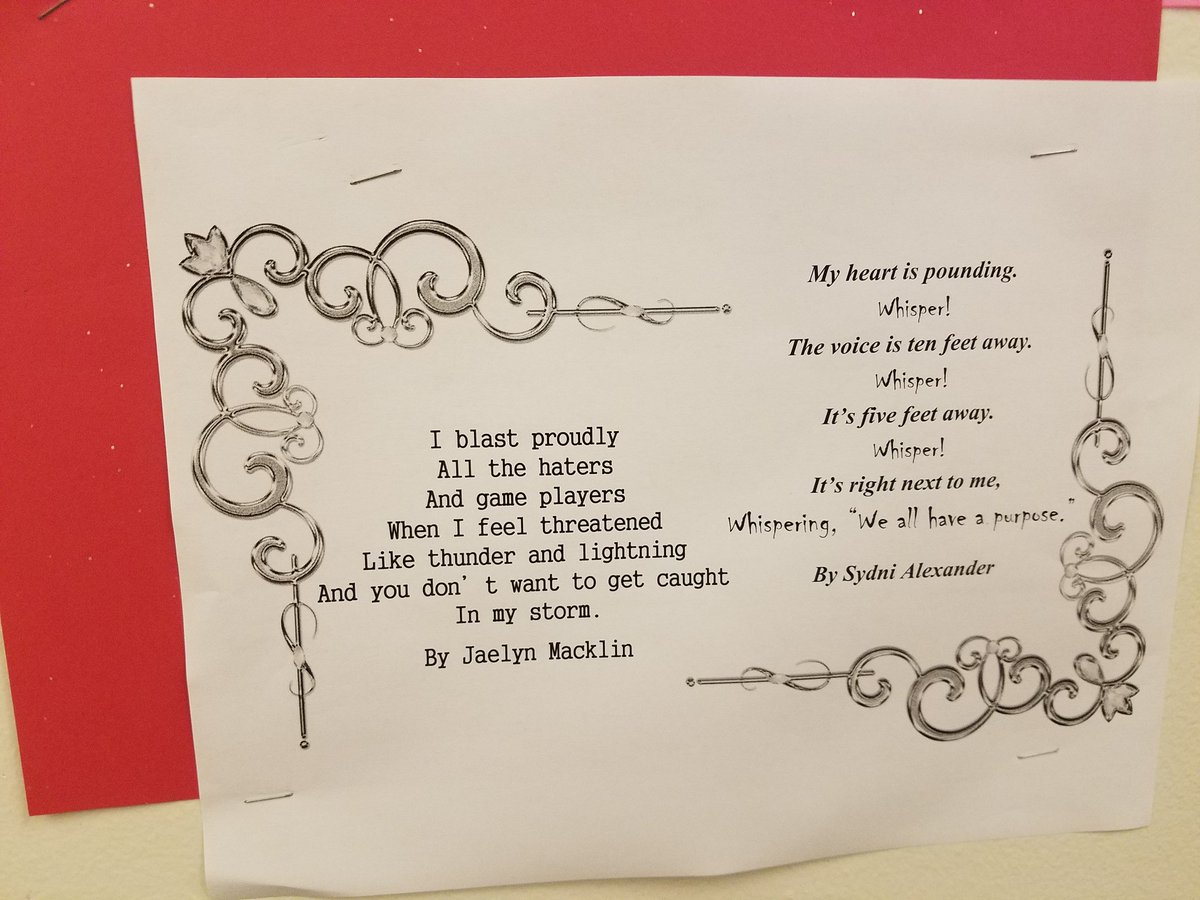 I blast proudly
All the haters
And game players
When I feel threatened
Like thunder and lightning
And you don't want to get caught
In my storm.
By Jaelyn Macklin
My heart is pounding.
Whisper!
The voice is ten feet away.
Whisper!
It's five feet away.
Whisper!
It's right next to me,
Whispering, "We all have a purpose."
By Sydni Alexander